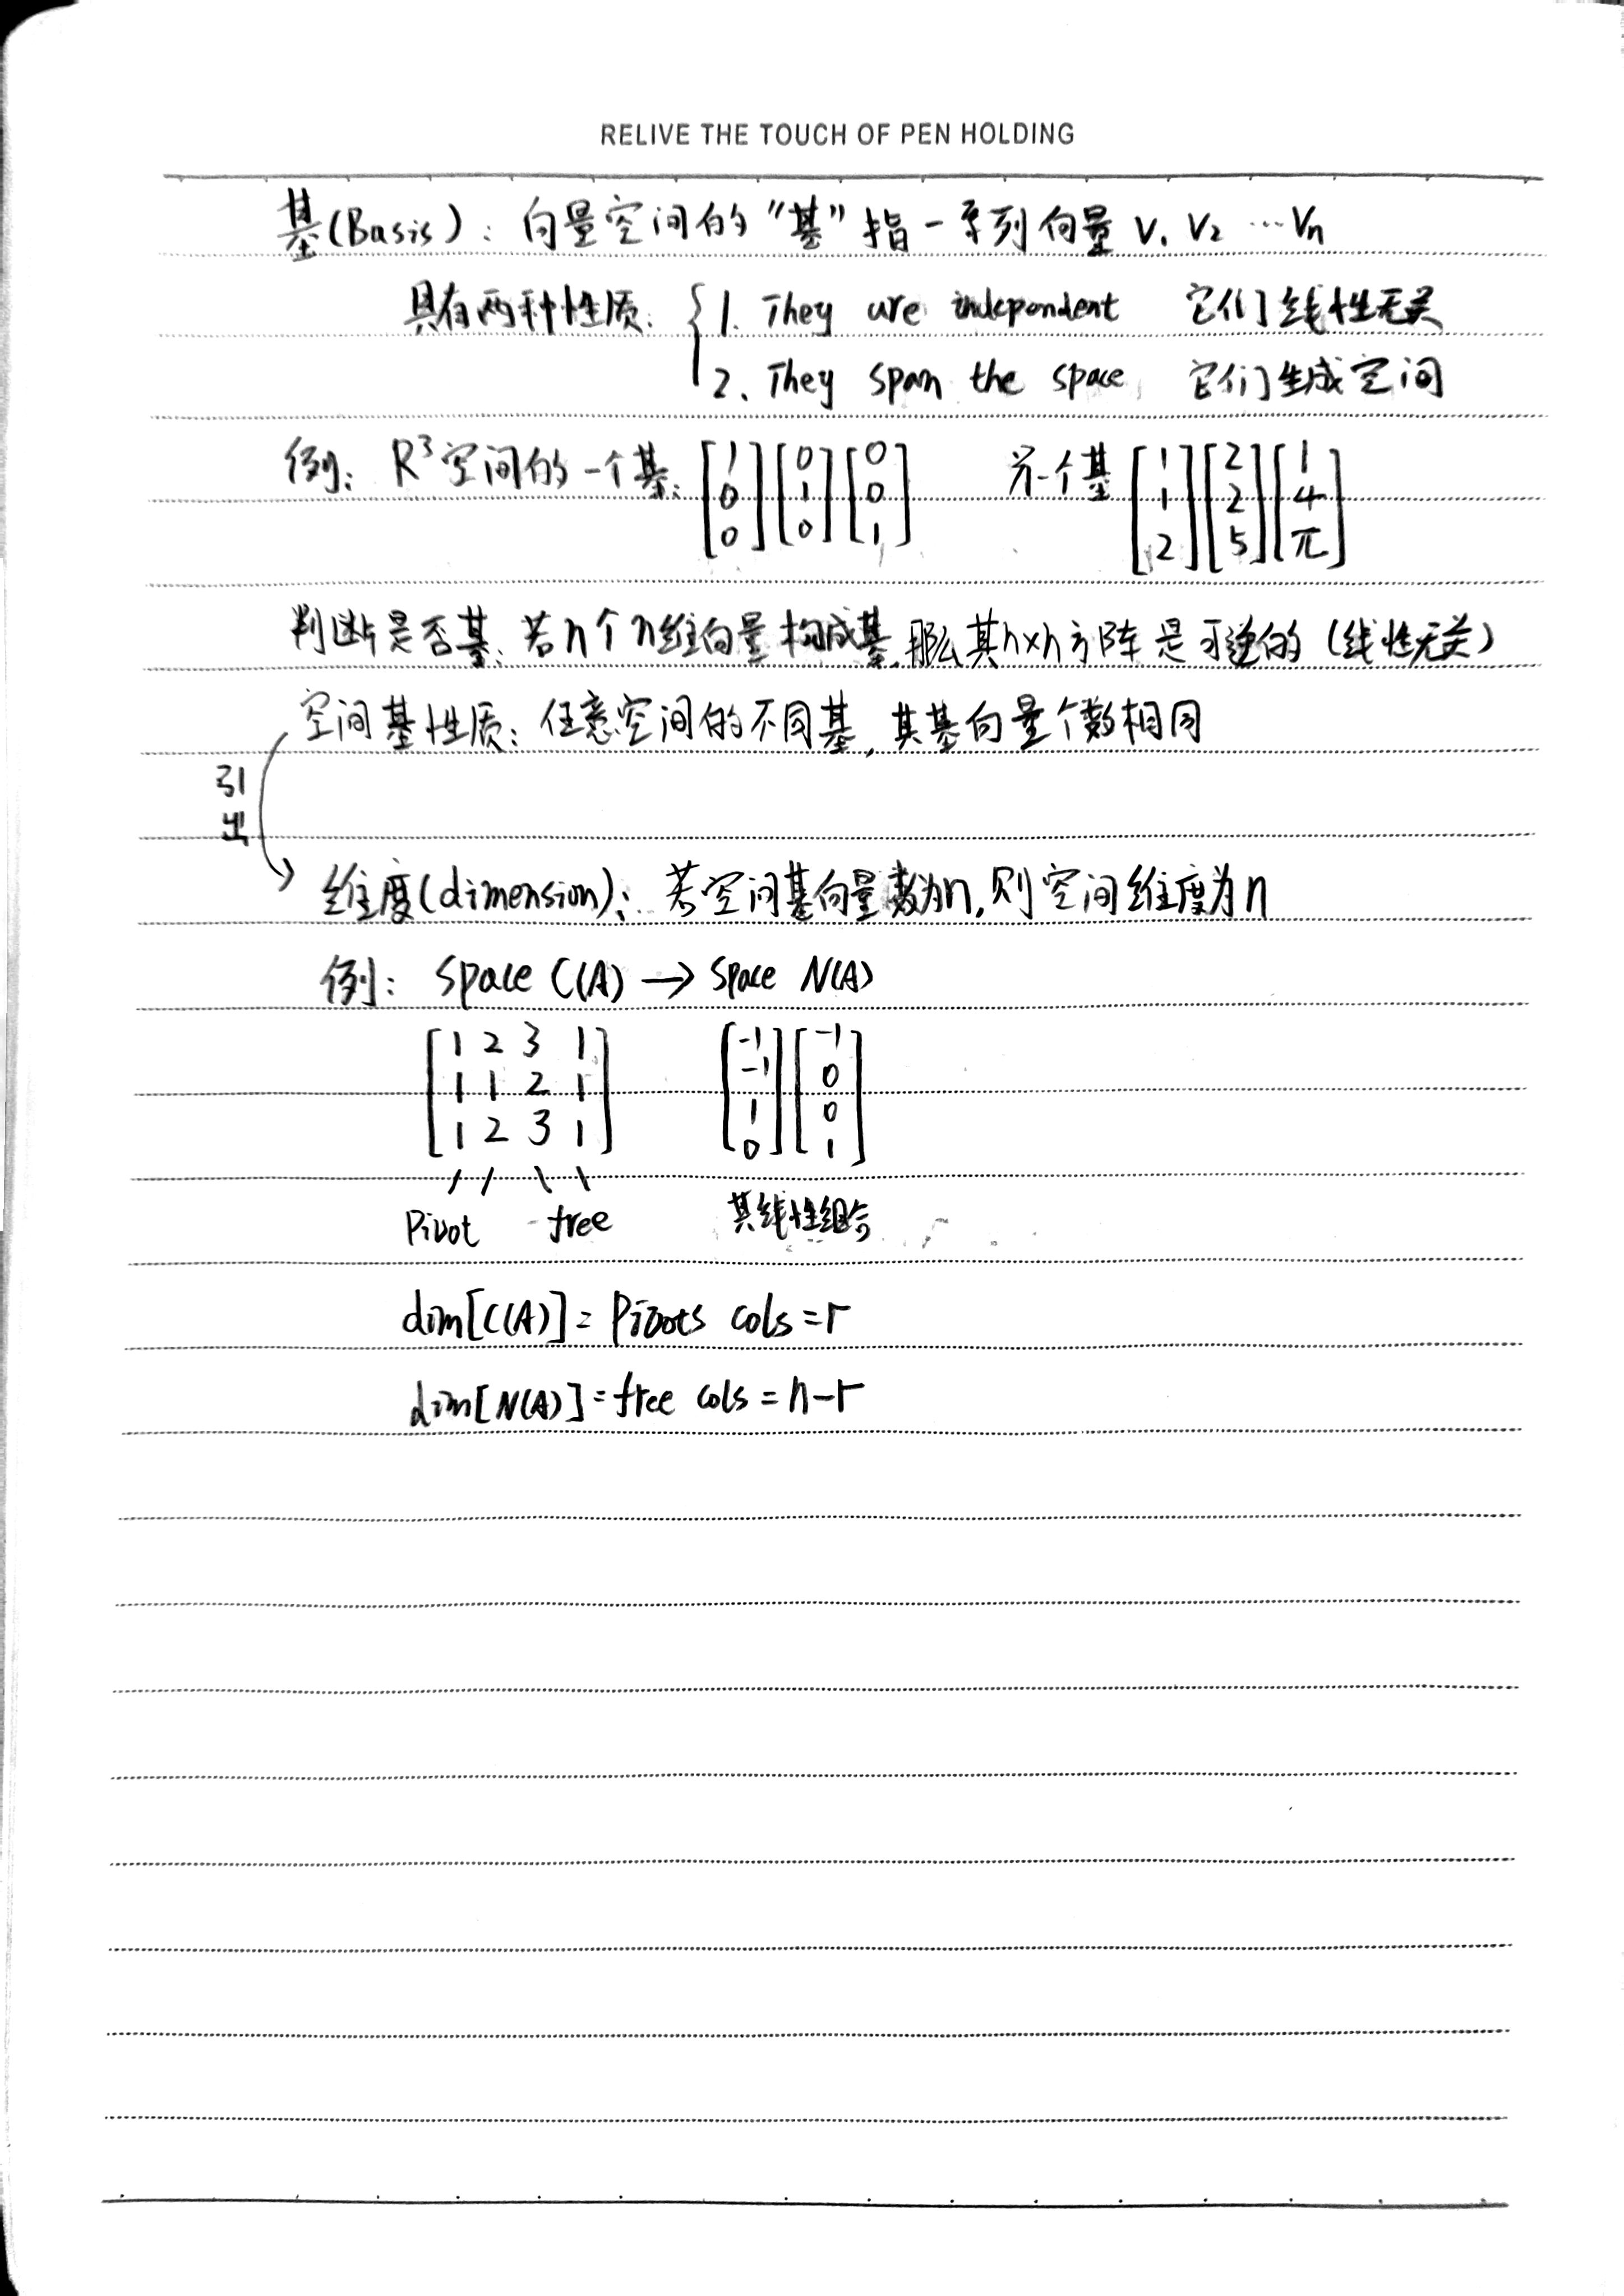 RELIVE THE TOUCH OF PEN HOLDING
基(Basis): 向量空间的"基"指一系列向量 V₁ V₂ …Vn
具有两种性质: { 1. They are independent 它们线性无关
2. They span the space 它们生成空间
例: R³空间的一个基: [1 0 0] [0 1 0] [0 0 1] 另一个基 [1 1 2] [2 2 5] [1 4 π]
判断是否基: 若n个n维向量构成基,那么其n×n方阵是可逆的(线性无关)
空间基性质: 任意空间的不同基,其基向量个数相同
引出
维度(dimension): 若空间基向量数为n,则空间维度为n
例: Space C(A) → Space N(A)
[1 2 3 1
1 1 2 1
1 2 3 1] [-1 -1 1 0] [-1 0 0 1]
Pivot free 其线性组合
dim[C(A)] = Pivots cols = r
dim[N(A)] = free cols = n-r